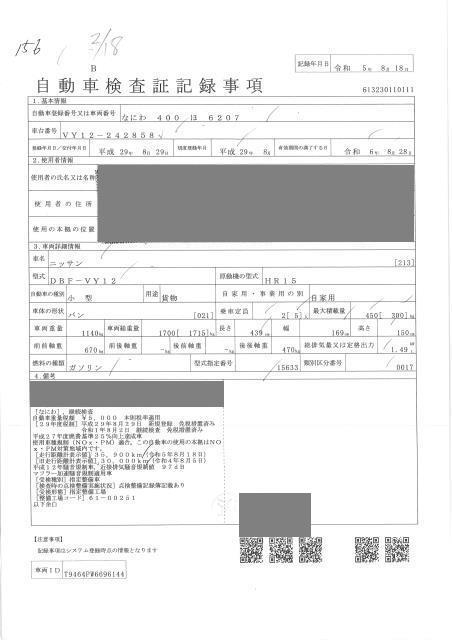 156 2/18
B
記録年月日 令和 5年 8月 18日
自動車検査証記録事項
613230110111
1.基本情報
自動車登録番号又は車両番号 なにわ 400 ほ 6207
車台番号 VY12-242858
登録年月日/交付年月日 平成 29年 8月 29日 初度登録年月 平成 29年 8月 有効期間の満了する日 令和 6年 8月 28日
2.使用者情報
使用者の氏名又は名称
使用者の住所
使用の本拠の位置
3.車両詳細情報
車名 ニッサン [213]
型式 DBF-VY12 原動機の型式 HR15
自動車の種別 小型 用途 貨物 自家用・事業用の別 自家用
車体の形状 バン [021] 乗車定員 2[ 5]人 最大積載量 450[ 300]kg
車両重量 1140kg 車両総重量 1700[ 1715]kg 長さ 439cm 幅 169cm 高さ 150cm
前前軸重 670kg 前後軸重 -kg 後前軸重 -kg 後後軸重 470kg 総排気量又は定格出力 1.49
燃料の種類 ガソリン 型式指定番号 15633 類別区分番号 0017
4.備考
[なにわ],継続検査
自動車重量税額 ¥5,000 本則税率適用
[29年度税制]平成29年8月29日 新規登録 免税措置済み
令和1年8月2日 継続検査 免税措置済み
平成27年度燃費基準25%向上達成車
使用車種規制(NOx・PM)適合。この自動車の使用の本拠はNO
x・PM対策地域内です。
[走行距離計表示値]35,900km(令和5年8月18日)
[旧走行距離計表示値]30,000km(令和4年8月5日)
平成12年騒音規制車,近接排気騒音規制値 97dB
マフラー加速騒音規制適用車
[受検種別]指定整備車
[検査時の点検整備実施状況]点検整備記録簿記載あり
[受検形態]指定整備工場
[整備工場コード]61-00251
以下余白
【注意事項】
記録事項はシステム登録時点の情報となります
車両ID T9464PW6696144